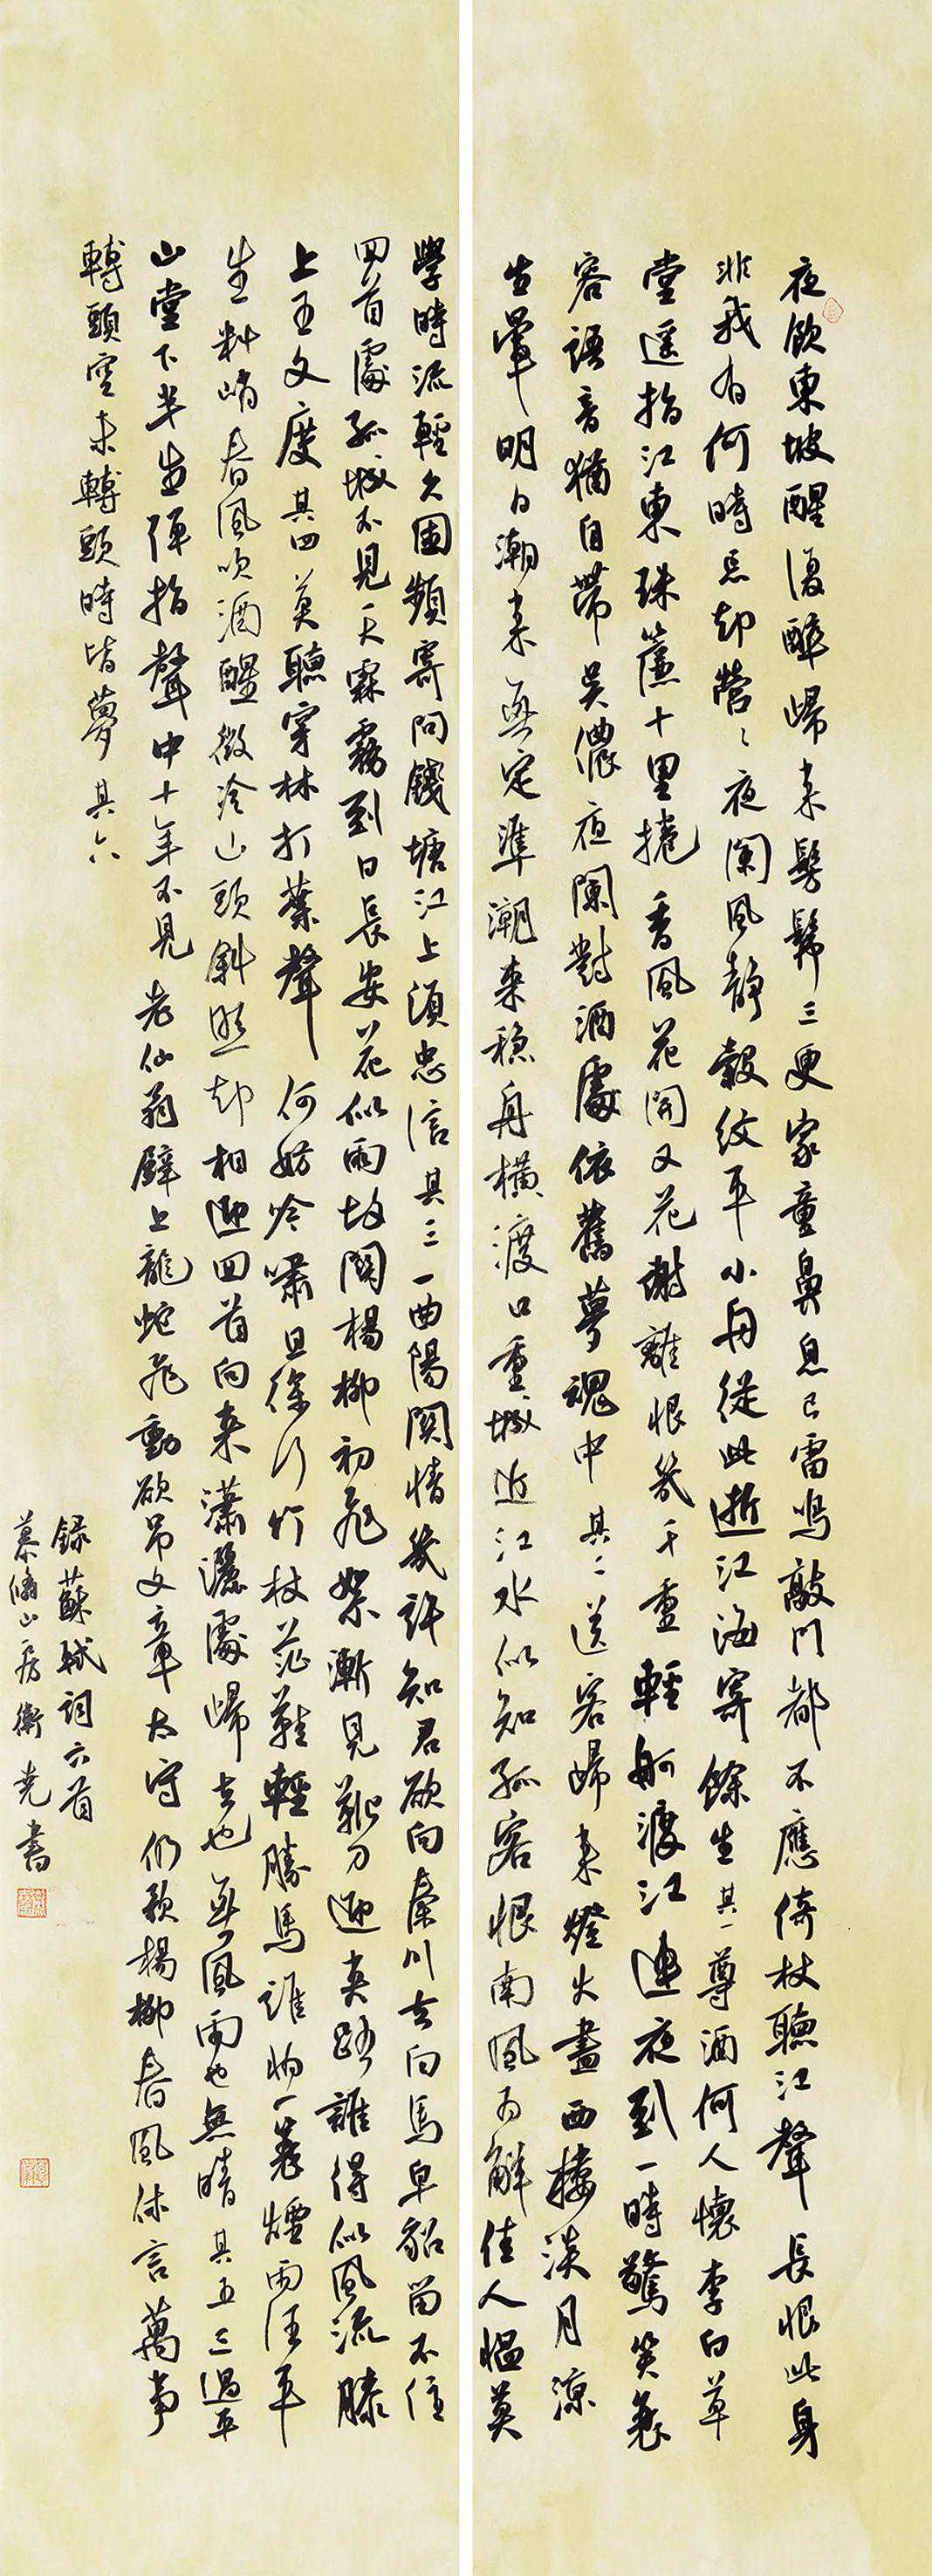 夜飲東坡醒復醉歸來髣髴三更家童鼻息已雷鳴敲門都不應倚杖聽江聲 長恨此身
非我有何時忘却營〻夜闌風靜縠紋平小舟從此逝江海寄餘生 其一 尊酒何人懷李白草
堂遥指江東珠簾十里捲香風花開又花謝離恨幾千重 輕舸渡江連夜到一時驚笑衰
容語音猶自帶吳儂夜闌對酒處依舊夢魂中 其二 送客歸來燈火盡西樓淡月涼
生暈明日潮來無定準潮來穩舟橫渡口重城近 江水似知孤客恨南風為解佳人慍莫
學時流輕久困頻寄問錢塘江上須忠信 其三 一曲陽關情幾許知君欲向秦川去白馬皁貂留不住
回首處孤城不見天霖霧 到日長安花似雨故關楊柳初飛絮漸見靴刀迎夾路誰得似風流膝
上王文度 其四 莫聽穿林打葉聲 何妨吟嘯且徐行竹杖芒鞋輕勝馬誰怕一蓑煙雨任平
生 料峭春風吹酒醒微冷山頭斜照却相迎回首向來瀟灑處歸去也無風雨也無晴 其五 三過平
山堂下半生彈指聲中十年不見老仙翁壁上龍蛇飛動 欲弔文章太守仍歌楊柳春風休言萬事
轉頭空未轉頭時皆夢 其六
錄蘇軾詞六首
慕脩山房衛堯書